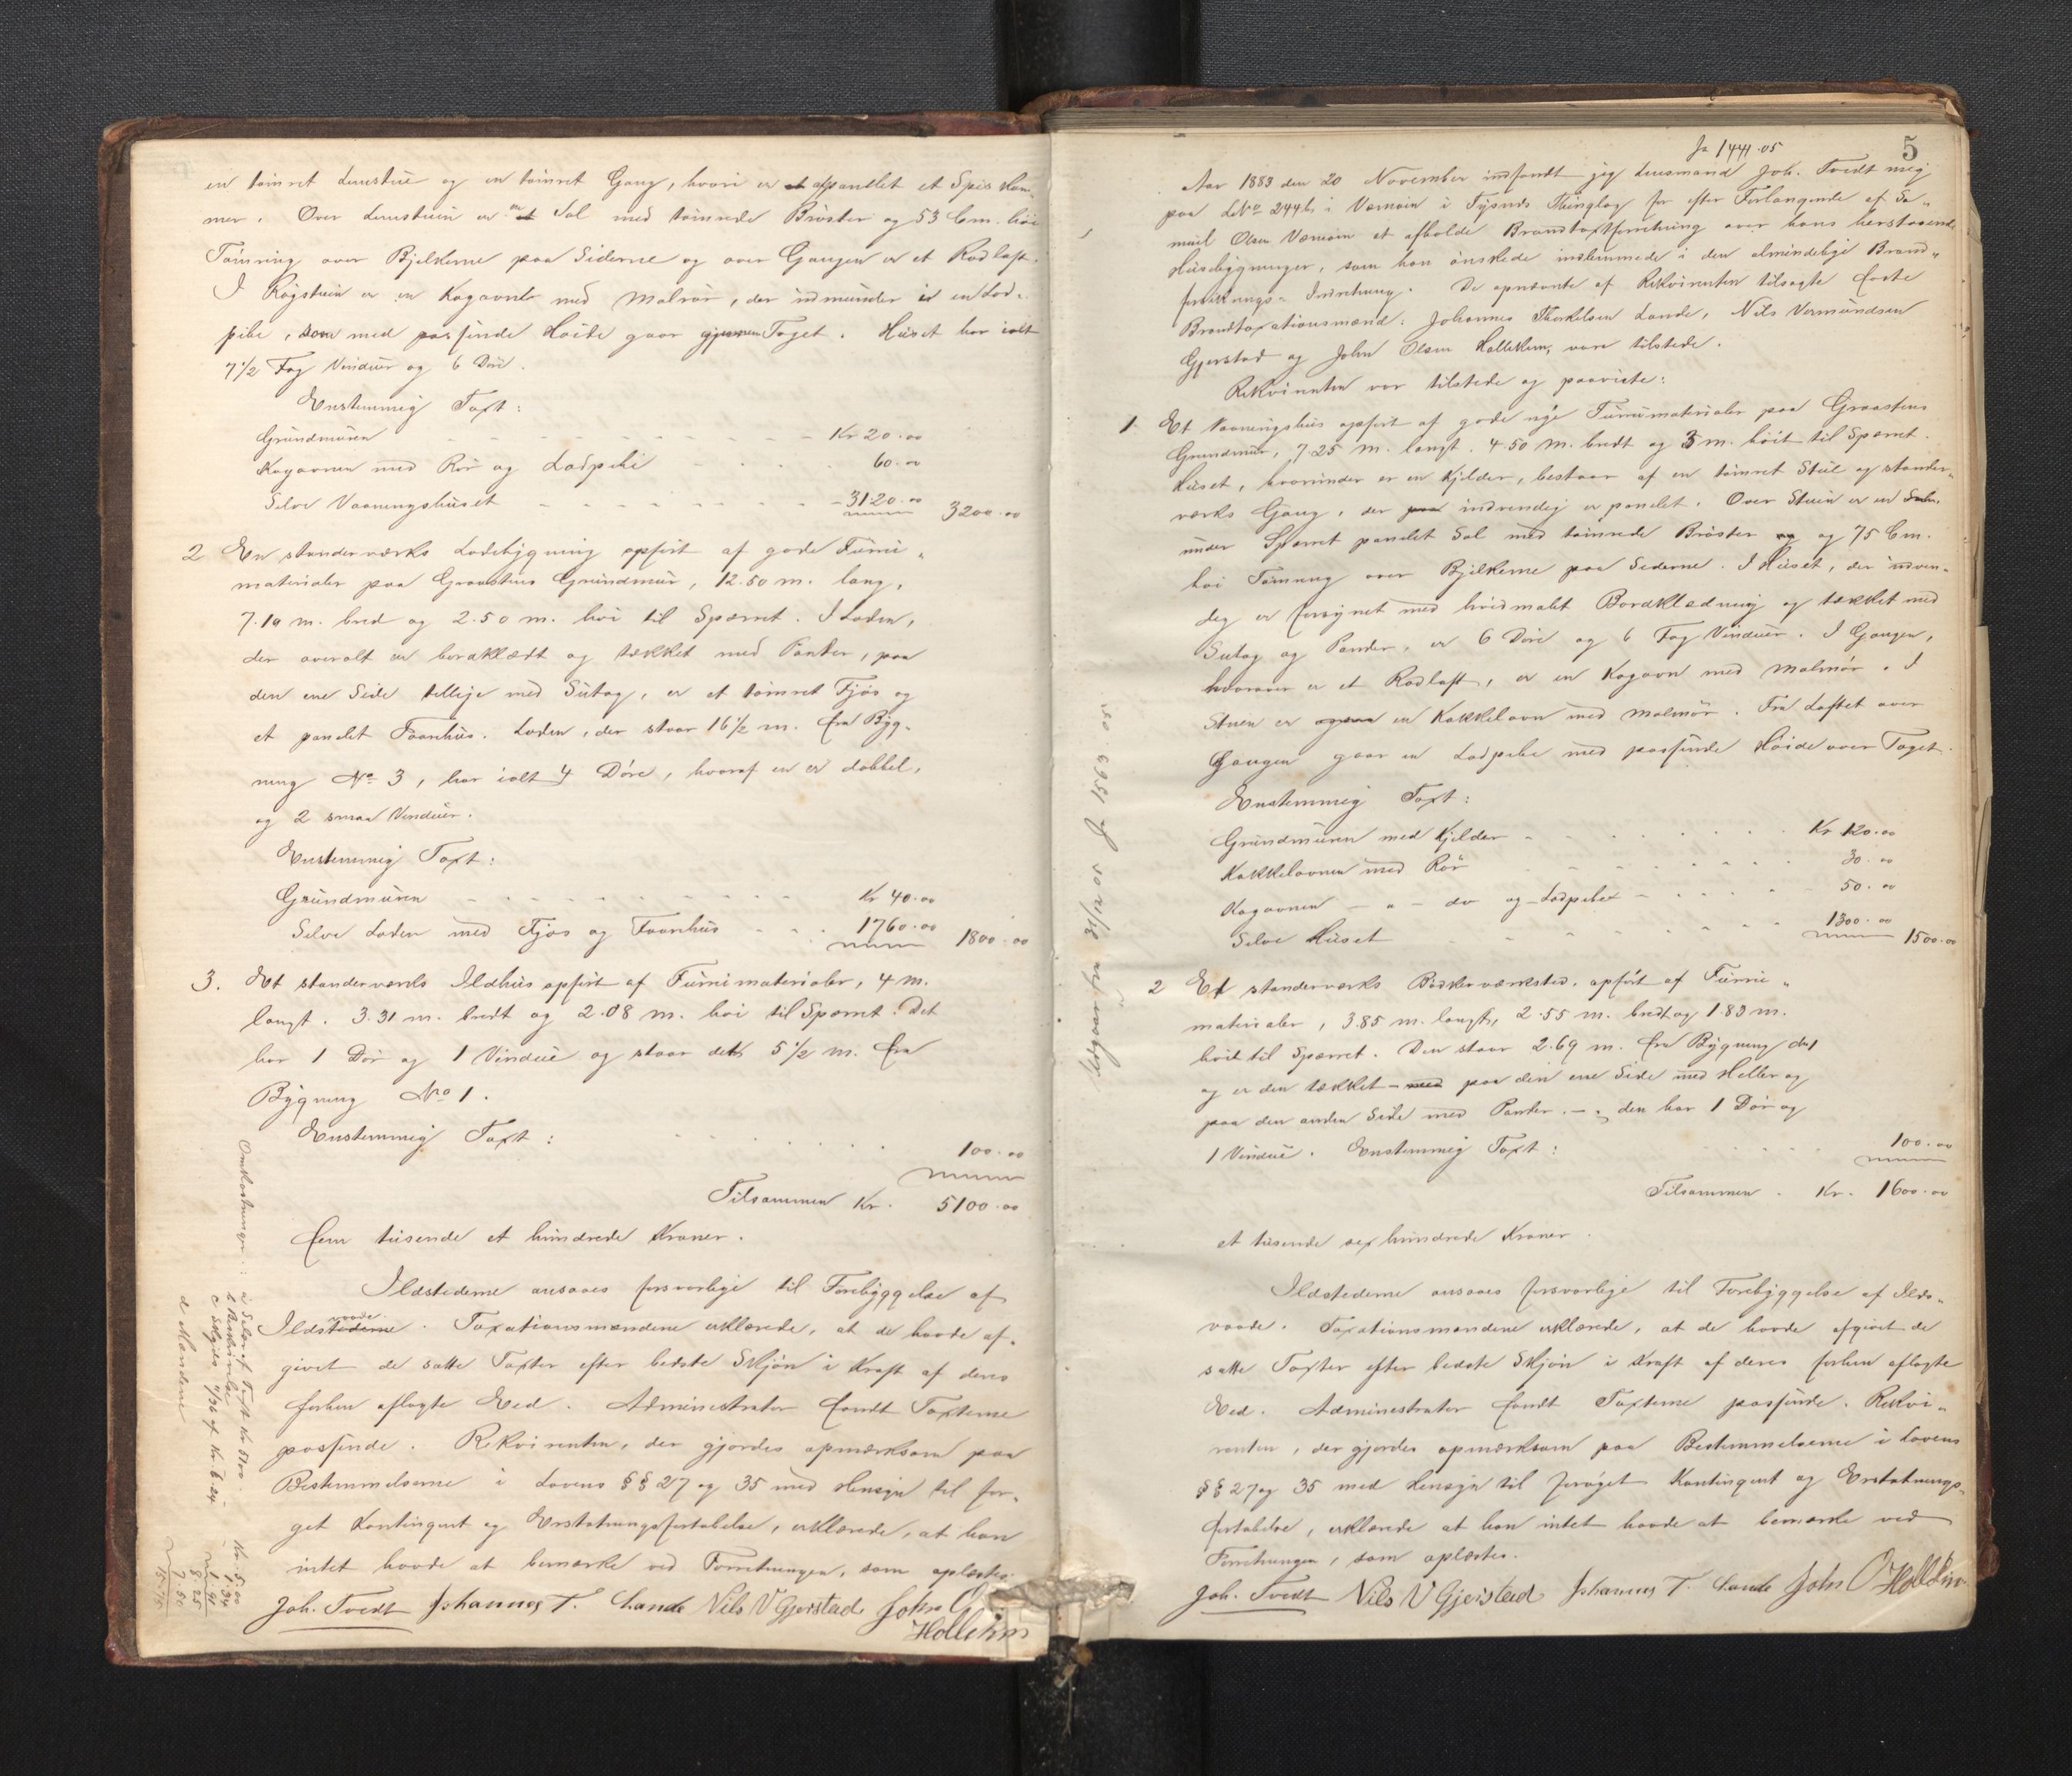 en tömret Lemstue og en tömret Gang, hvori er afpanelet et Spiskam-
mer. Over Lemstuen er en Sal med tömrede Bröster og 53 Cm. höi
Tömring over Bjelkerne paa Siderne og over Gangen er et Rodloft.
I Rögstuen er en Kogeovn med Malmrör, der indmunder i en Lod-
pibe, som med passende Höide gaar gjennem Taget. Huset har ialt
7 1/2 Fag Vinduer og 6 Döre.
Enstemmig Taxt:
Grundmuren Kr 20.00
Kogeovnen med Rör og Lodpibe 60.00
Selve Vaaningshuset 3120.00 3200.00
2 En standerværks Ladebygning opfört af gode Furru-
materialer paa Graastens Grundmur, 12.50 m. lang,
7.10 m. bred og 2.50 m. höi til Sperret. I Laden,
der overalt er bordklædt og tækket med Panter, paa
den ene Side tillige med Sutag, er et tömret Fjös og
et panelet Faarehus. Laden, der staar 16 1/2 m. fra Byg-
ning No 3, har ialt 4 Döre, hvoraf en er dobbel,
og 2 smaa Vinduer.
Enstemmig Taxt:
Grundmuren Kr 40.00
Selve Laden med Fjös og Faarehus 1760.00 1800.00
3. Et standerværks Ildhus opfört af Furrumaterialer, 4 m.
langt, 3.31 m. bredt og 2.08 m. höi til Sperret. Det
har 1 Dör og 1 Vindue og staar det 5 1/2 m. fra
Bygning No 1.
Enstemmig Taxt: 100.00
Tilsammen Kr. 5100.00
fem tusende et hundrede Kroner.
Ildstederne ansaaes forsvarlige til Forebyggelse af
Ildsvaade. Taxationsmændene erklærede, at de havde af-
givet de satte Taxter efter bedste Skjön i Kraft af deres
forhen aflagte Eed. Administrator fandt Taxterne
passende. Rekvirenten, der gjordes opmærksom paa
Bestemmelserne i Lovens §§ 27 og 35 med Hensyn til for-
get Kontingent og Erstatningsfortabelse, erklærede, at han
intet havde at bemærke ved Forretningen, som oplæstes.
Joh. Tvedt Johannes T. Lande Nils V Gjerstad John O
Hollekim
Omkostninger:
a Salær af Taxt Kr 5100. Kr. 5.00
d Mændene 7.50
Ja 1441.05
5
Aar 1883 den 20 November indfandt jeg Lensmand Joh. Tvedt mig
paa LNo 244b i Værnöin i Tysnes Thinglag for efter Forlangende af Sa-
muel Olsen Værnöin at afholde Brandtaxtforretning over hans herstaaende
Husebygninger, som han önskede indlemmede i den almindelige Brand-
forsikrings-Indretning. De opnævnte af Rekvirenten tilsagte faste
Brandtaxationsmænd: Johannes Therkelsen Lande, Nils Vermundsen
Gjerstad og John Olsen Hollekim, vare tilstede.
Rekvirenten var tilstede og paaviste:
1. Et Vaaningshus opfört af gode nye Furrumaterialer paa Graastens
Grundmur, 7.25 m. langt, 4.50 m. bredt og 3 m. höit til Sperret.
Huset, hvorunder er en Kjelder, bestaar af en tömret Stue og stander-
værks Gang, der indvendig er panelet. Over Stuen er en
under Sperret panelet Sal med tömrede Bröster og 75 Cm.
höi Tömring over Bjelkerne paa Siderne. I Huset, der udven-
dig er forsynet med hvidmalet Bordklædning og tækket med
Sutag og Pander, er 6 Döre og 6 Fag Vinduer. I Gangen,
hvorover er et Rodloft, er en Kogeovn med Malmrör. I
Stuen er en Kakkelovn med Malmrör. Fra Loftet over
Gangen gaar en Lodpibe med passende Höide over Taget.
Enstemmig Taxt:
Grundmuren med Kjelder Kr 120.00
Kakkelovnen med Rör 30.00
Kogeovnen - " - do og Lodpibe 50.00
Selve Huset 1300.00 1500.00
2 Et standerværks Bödkerværksted, opfört af Furru-
materialer, 3.85 m. langt, 2.55 m. bredt og 1.83 m.
höit til Sperret. Den staar 2.69 m. fra Bygning No 1
og er den tækket paa den ene Side med Heller og
paa den anden Side med Panter. - den har 1 Dör og
1 Vindue. Enstemmig Taxt: 100.00
Tilsammen Kr. 1600.00
et tusende sex hundrede Kroner.
Ildstederne ansaaes forsvarlige til Forebyggelse af Ilds-
vaade. Taxationsmændene erklærede, at de havde afgivet de
satte Taxter efter bedste Skjön i Kraft af deres forhen aflagte
Eed. Administrator fandt Taxterne passende. Rekvi-
renten, der gjordes opmærksom paa Bestemmelserne i Lovens
§§ 27 og 35 med Hensyn til foröget Kontingent og Erstatnings-
fortabelse, erklærede at han intet havde at bemærke ved
Forretningen, som oplæstes.
Joh. Tvedt Nils V Gjerstad Johannes T. Lande John O Hollekim
Udgaar fra 31/12 05 Ja 1563.05